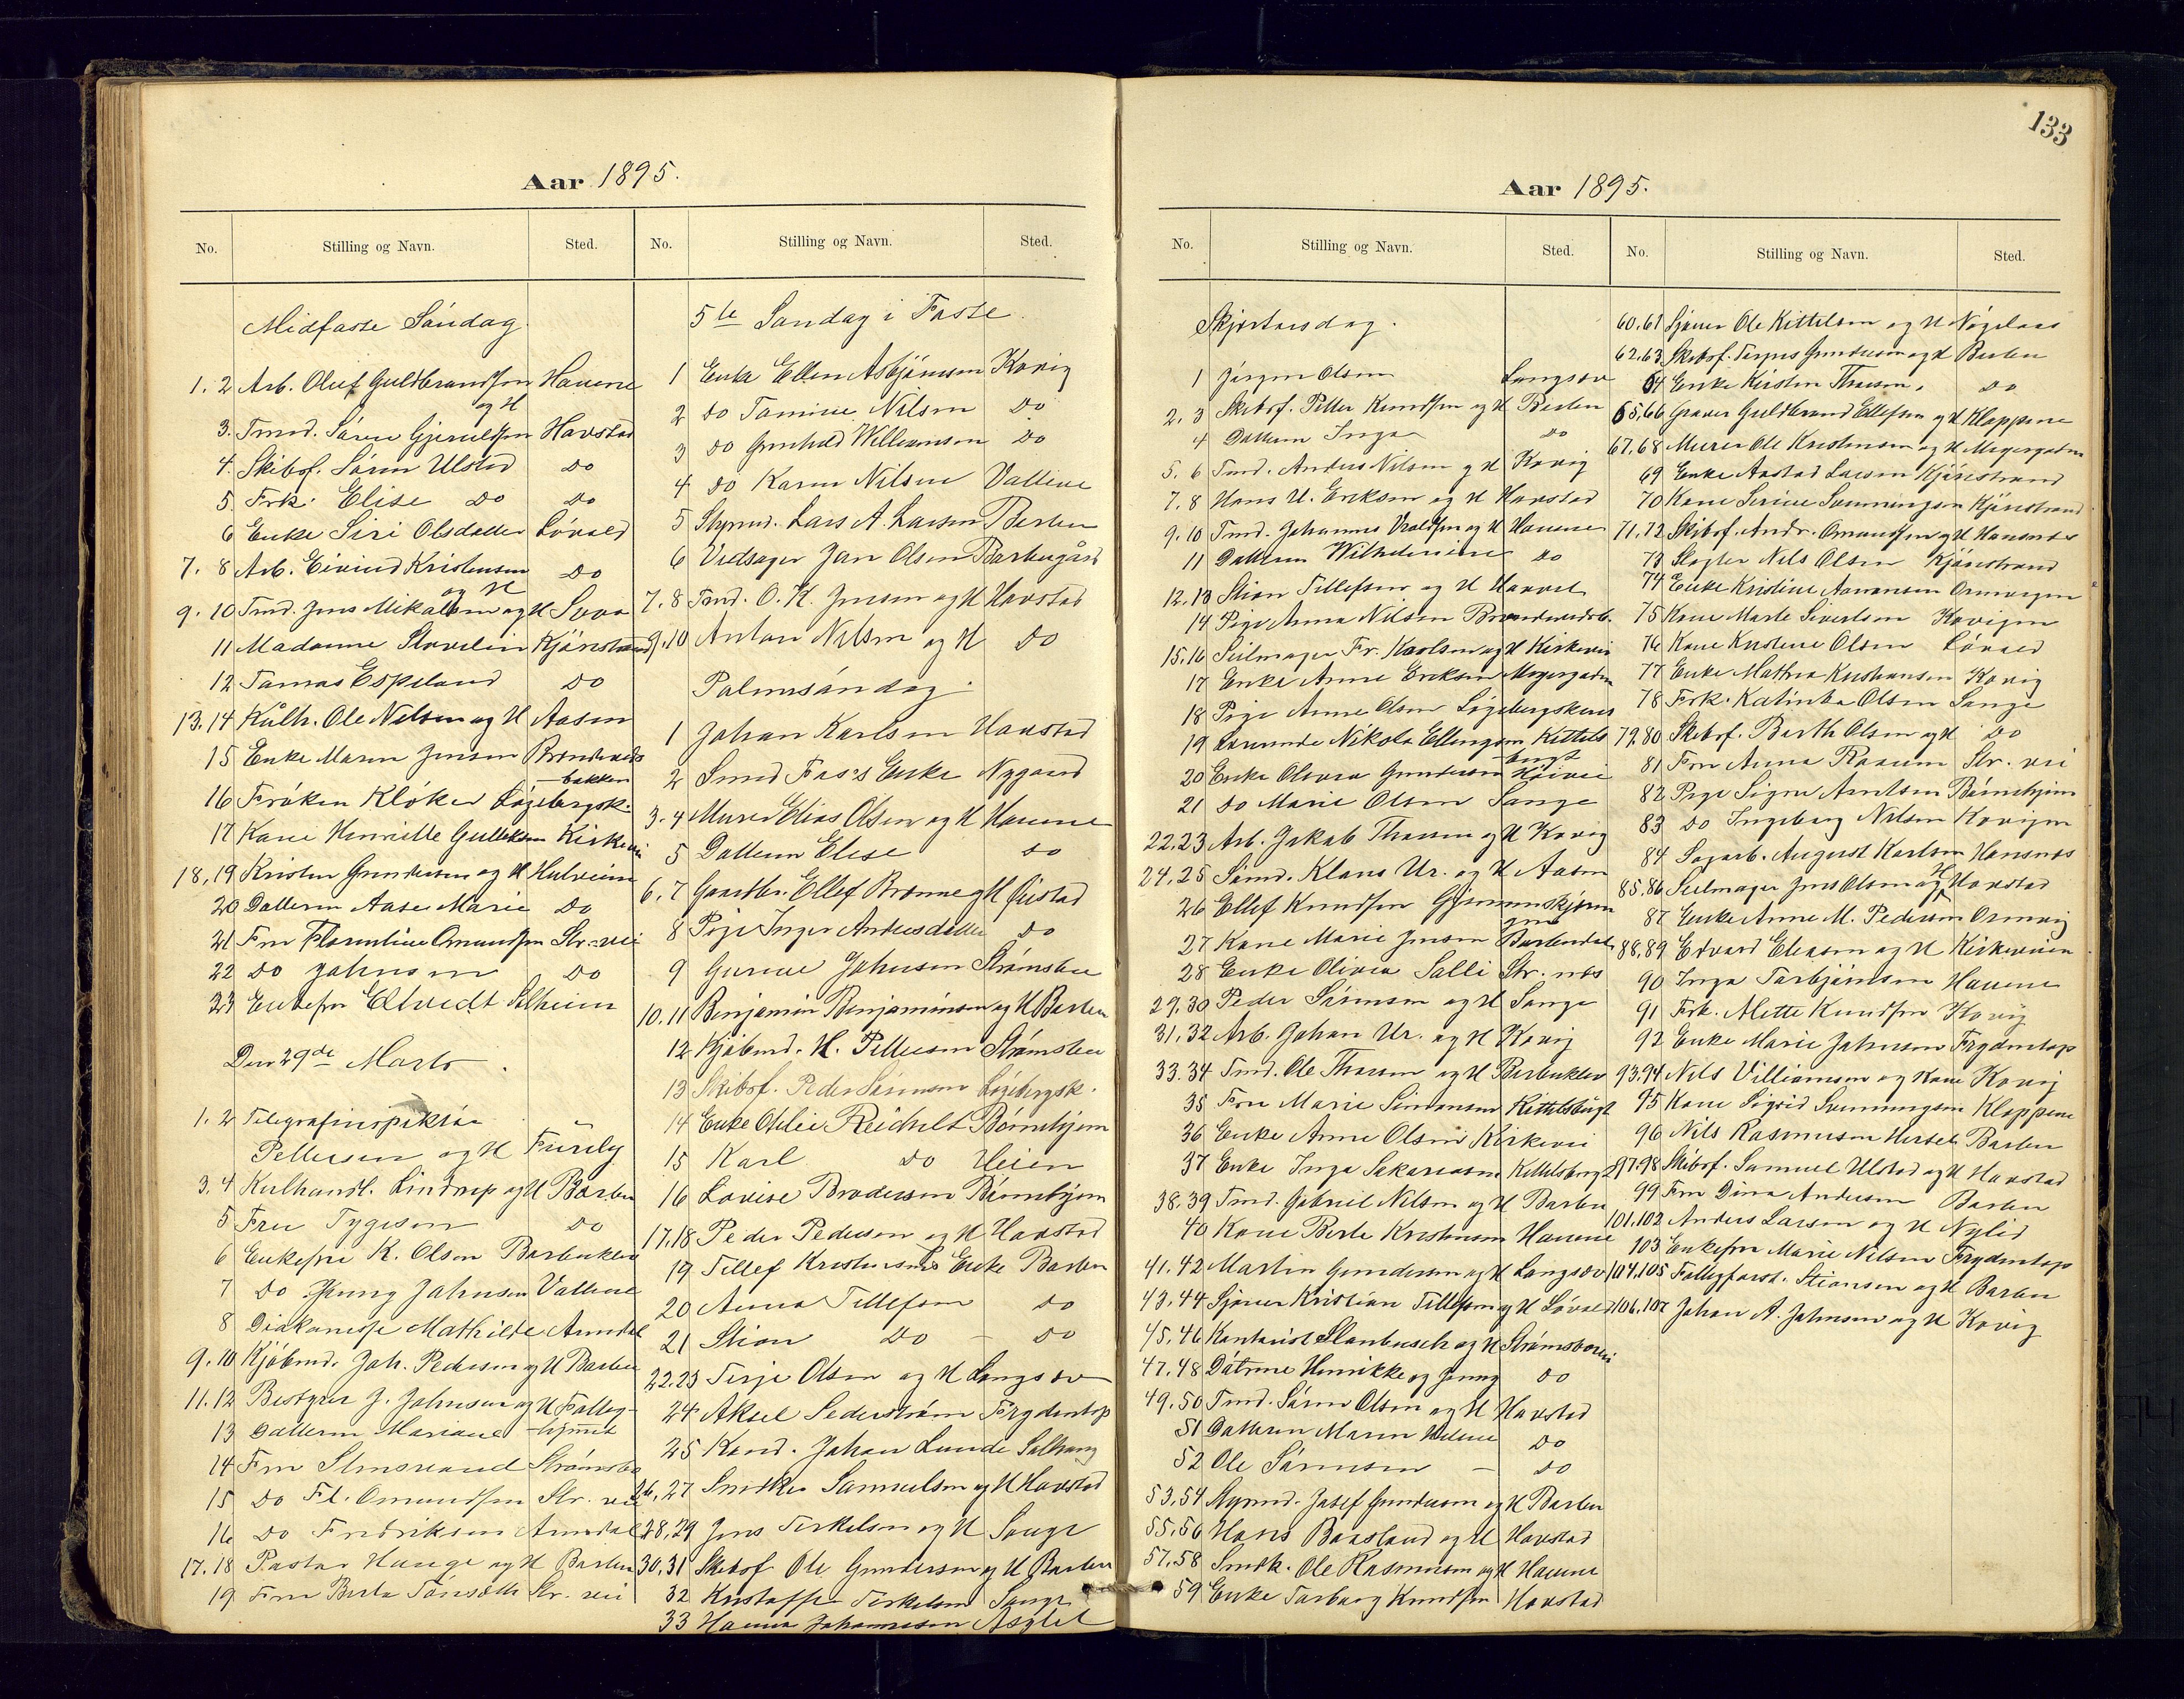 133
Aar 1895.
No. Stilling og Navn. Sted.
Midfaste Søndag.
1. 2 Arb. Oluf Guldbrandsen Hauene
og H
3. Tmd. Søren Gjeruldsen Havstad
4. Skibsf. Søren Ulstad do
5 Frk. Elise do do
6 Enke Siri Olsdatter Løvold
7. 8 Arb. Eivind Kristensen do
og H
9. 10 Tmd. Jens Mikalsen og H
11 Madamme Kjørrestrand
12 Tomas Espeland do
13. 14 Kulh. Ole Nilsen og H Aasen
15 Enke Maren Jensen Brændevins
bakken
16 Frøken Kløker Løgebergsk.
17 Kone Henriette Gulleksen Kirkevei
18, 19 Kristen Gundersen og H
20 Datteren Aase Marie do
21 Fru Florentine Omundsen Str. vei
22 do Johnsen do
23 Enkefru Solheim
Den 29de Marts
1. 2 Telegrafinspektør
Pettersen og H Furuly
3. 4 Kulhandl. Lindrup og H Barbu
5 Fru Tygesen do
6 Enkefru K. Olsen Barbuklev
7 do Jenny Johnsen Vallene
8 Diakonisse Mathilde Arendal
9. 10 Kjøbmd. Joh. Pedersen og H Barbu
11. 12 Bestyrer J. Johnsen og H Fattig-
13 Datteren Mariane -hjemmet
14 Fru Strømsbo
15 do Fl. Omundsen Str. vei
16 do Fredriksen Arendal
17. 18 Pastor Hauge og H Barbu
19 Fru Berta Str. vei
No. Stilling og Navn. Sted.
5te Søndag i Faste.
1 Enke Ellen Asbjørnsen Kovig
2 do Tomine Nilsen do
3 do Gunhild Williamsen do
4 do Karen Nilsen Vallene
5 Styrmd. Lars A. Larsen Barbu
6 Vedsager Jan Olsen Barbugård
7. 8 Tmd. O. K. Jensen og H Havstad
9. 10 Anton Nilsen og H do
Palmesøndag.
1 Johan Karlsen Havstad
2 Smed Enke Nygaard
3. 4 Murer Elias Olsen og H Hauene
5 Datteren Elise do
6. 7 Gaardbr. Ellef Brønne og H
8 Pige Inger Andersdatter do
9 Gurine Johnsen Strømsbu
10. 11 Benjamin Benjaminsen og H Barbu
12 Kjøbmd. H. Pettersen Strømsbu
13 Skibsf. Peder Sørensen Løgebergsk.
14 Enke Otelie Reichelt Børnehjem
15 Karl do Heien
16 Lovise Brodersen Børnehjem
17. 18 Peder Pedersen og H Havstad
19 Tellef Kristensens Enke Barbu
20 Anna Tellefsen do
21 Stian do - do
22. 23 Terje Olsen og H Langsæv
24 Aksel Sederstrøm Frydentop
25 Kand. Johan Lunde Solhaug
26. 27 Snedker Samuelsen og H Havstad
28, 29 Jens Terkelsen og H Songe
30, 31 Skibsf Ole Gundersen og H Barbu
32 Kristoffer Terkelsen Songe
33 Hanna Johannesen
Aar 1895.
No. Stilling og Navn. Sted.
Skjærtorsdag.
1 Jørgen Olsen Langsæv
2. 3 Skibsf. Petter Knudsen og H Barbu
4 Datteren Inga do
5. 6 Tmd. Anders Nilsen og H Kovig
7. 8 Hans U. Eriksen og H Havstad
9. 10 Tmd. Johannes og H Hauene
11 Datteren Wilhelmine do
12. 13 Stian Tellefsen og H
14 Pige Anna Nilsen
15. 16 Seilmager Fr. Karlsen og H Kirkevei
17 Enke Anne Eriksen Meyergaden
18 Pige Anne Olsen Løgebergskleiv
19 Nikola Ellingsen Kittels
bugt
20 Enke Olava Gundersen
21 do Marie Olsen Songe
22. 23 Arb. Jakob Thorsen og H Kovig
24. 25 Sømd. Klaus Ur. og H Aasen
26 Ellef Knudsen
27 Kone Marie Jensen Barbudal
28 Enke Olivia Salli Str. næs
29. 30 Peder Sørensen og H Songe
31. 32 Arb. Johan Ur. og H Kovig
33. 34 Tmd. Ole Thorsen og H Barbuklev
35 Fru Marie Simonsen Kittelsbugt
36 Enke Anne Olsen Kirkevei
37 Enke Inga Sakariasen Kittelsbugt
38. 39 Tmd. Gabriel Nilsen og H Barbu
40 Kone Berte Kristensen Hauene
41. 42 Martin Gundersen og H Langsæv
43. 44 Sjøner Kristian Tellefsen og H Løvold
45. 46 Kontorist og H Strømsboveien
47. 48 Døtrene Henrikke og Jenny do
49. 50 Tmd. Søren Olsen og H Havstad
51 Datteren Maren Helene do
52 Ole Sørensen - do
53. 54 Styrmd. Josef Gundersen og H Barbu
55. 56 Hans Baasland og H Havstad
57. 58 Snedk. Ole Rasmussen og H Hauene
59 Enke Torborg Knudsen Havstad
No. Stilling og Navn. Sted.
60. 61 Sjøner Ole Kittilsen og H
62. 63 Skibsf. Terjus Gundersen og H Barbu
64 Enke Kirsten Thorsen. do
65. 66 Graver Guldbrand Ellefsen og H Kloppene
67. 68 Murer Ole Kristensen og H Meyergaden
69 Enke Aastad Larsen Kjørrestrand
70 Kone Serine Sonningsen Kjørrestrand
71. 72 Skibsf. Andr. Omundsen og H Hansnæs
73 Slagter Nils Olsen Kjørrestrand
74 Enke Kristine Aanonsen Ormvigen
75 Kone Marte Sivertsen Kovigen
76 Kone Kristine Olsen Løvold
77 Enke Mathea Kristiansen Kovig
78 Frk. Katinka Olsen Songe
79. 80 Skibsf. Barth Olsen og H do
81 Fru Anna Str. vei
82 Pige Signe Arntsen Børnehjem
83 do Ingeborg Nilsen Kovigen
84 Sagarb. August Karlsen Hansnæs
85. 86 Seilmager Jens Olsen og H Havstad
87 Enke Anne M. Pedersen Ormvig
88. 89 Edvard Eliasen og H Kirkeveien
90 Inga Torbjørnsen Hauene
91 Frk. Mette Knudsen Kovig
92 Enke Marie Johnsen Frydentop
93. 94 Nils Villiamsen og Kone Kovig
95 Kone Sigrid Svenningsen Kloppene
96 Nils Rasmussen Barbu
97. 98 Skibsf. Samuel Ulstad og H Havstad
99 Fru Dina Andersen Barbu
101. 102 Anders Larsen og H Nylid
103 Enkefru Marie Nilsen Frydentop
104. 105 Fattigforst. Stiansen og H Barbu
106. 107 Johan A. Johnsen og H Kovig